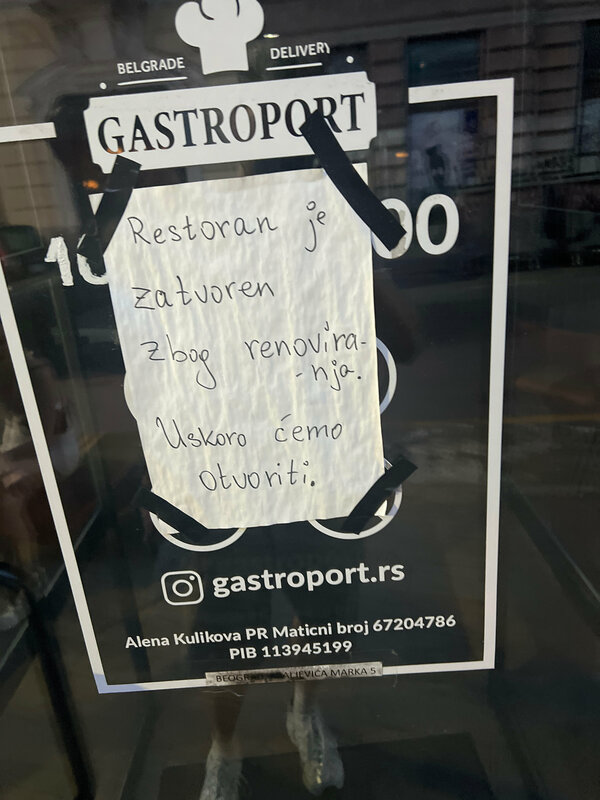 BELGRADE DELIVERY
GASTROPORT
Restoran je
zatvoren
zbog renovira-
-nja.
Uskoro ćemo
otvoriti.
gastroport.rs
Alena Kulikova PR Maticni broj 67204786
PIB 113945199
BEOGRAD, KRALJEVIĆA MARKA 5